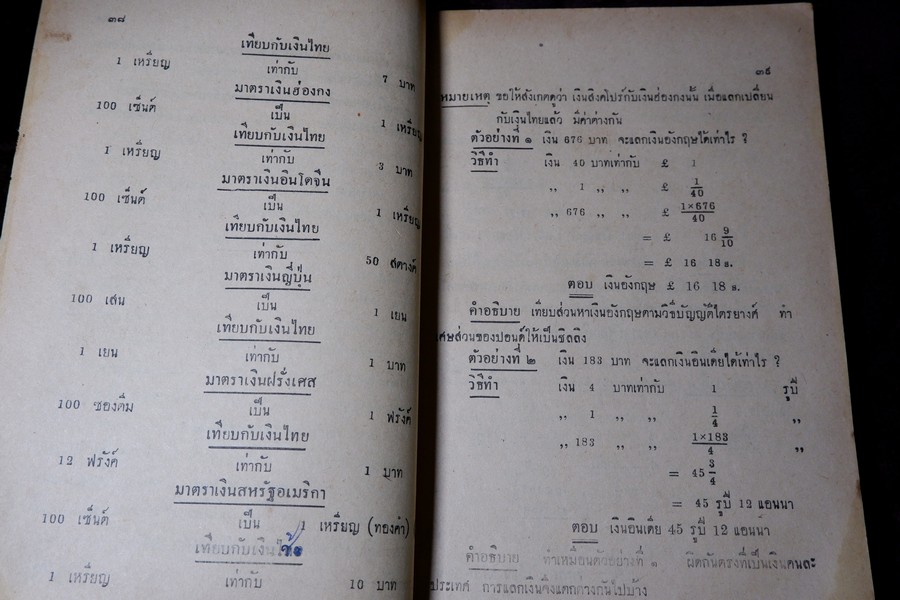 ๓๘
เทียบกับเงินไทย
1 เหรียญ เท่ากับ 7 บาท
มาตราเงินฮ่องกง
100 เซ็นต์ เป็น 1 เหรียญ
เทียบกับเงินไทย
1 เหรียญ เท่ากับ 3 บาท
มาตราเงินอินโดจีน
100 เซ็นต์ เป็น 1 เหรียญ
เทียบกับเงินไทย
1 เหรียญ เท่ากับ 50 สตางค์
มาตราเงินญี่ปุ่น
100 เสน เป็น 1 เยน
เทียบกับเงินไทย
1 เยน เท่ากับ 1 บาท
มาตราเงินฝรั่งเศส
100 ซองตีม เป็น 1 ฟรังค์
เทียบกับเงินไทย
12 ฟรังค์ เท่ากับ 1 บาท
มาตราเงินสหรัฐอเมริกา
100 เซ็นต์ เป็น 1 เหรียญ (ทองคำ)
เทียบกับเงินไทย
1 เหรียญ เท่ากับ 10 บาท
๓๙
หมายเหตุ ขอให้สังเกตดูว่า เงินสิงคโปร์กับเงินฮ่องกงนั้น เมื่อแลกเปลี่ยน
กับเงินไทยแล้ว มีค่าต่างกัน
ตัวอย่างที่ ๑ เงิน 676 บาท จะแลกเงินอังกฤษได้เท่าไร ?
วิธีทำ เงิน 40 บาทเท่ากับ £ 1
,, 1 ,, ,, £ 1/40
,, 676 ,, ,, £ 1×676/40
= £ 16 9/10
= £ 16 18 s.
ตอบ เงินอังกฤษ £ 16 18 s.
คำอธิบาย เทียบส่วนหาเงินอังกฤษตามวิธีบัญญัติไตรยางค์ ทำ
เศษส่วนของปอนด์ให้เป็นชิลลิง
ตัวอย่างที่ ๒ เงิน 183 บาท จะแลกเงินอินเดียได้เท่าไร ?
วิธีทำ เงิน 4 บาทเท่ากับ 1 รูปี
,, 1 ,, ,, 1/4 ,,
,, 183 ,, ,, 1×183/4 ,,
= 45 3/4
= 45 รูปี 12 แอนนา
ตอบ เงินอินเดีย 45 รูปี 12 แอนนา
คำอธิบาย ทำเหมือนตัวอย่างที่ ๑ ผิดกันตรงที่เป็นเงินคนละ
ประเทศ การแลกเงินจึงแตกต่างกันไปบ้าง